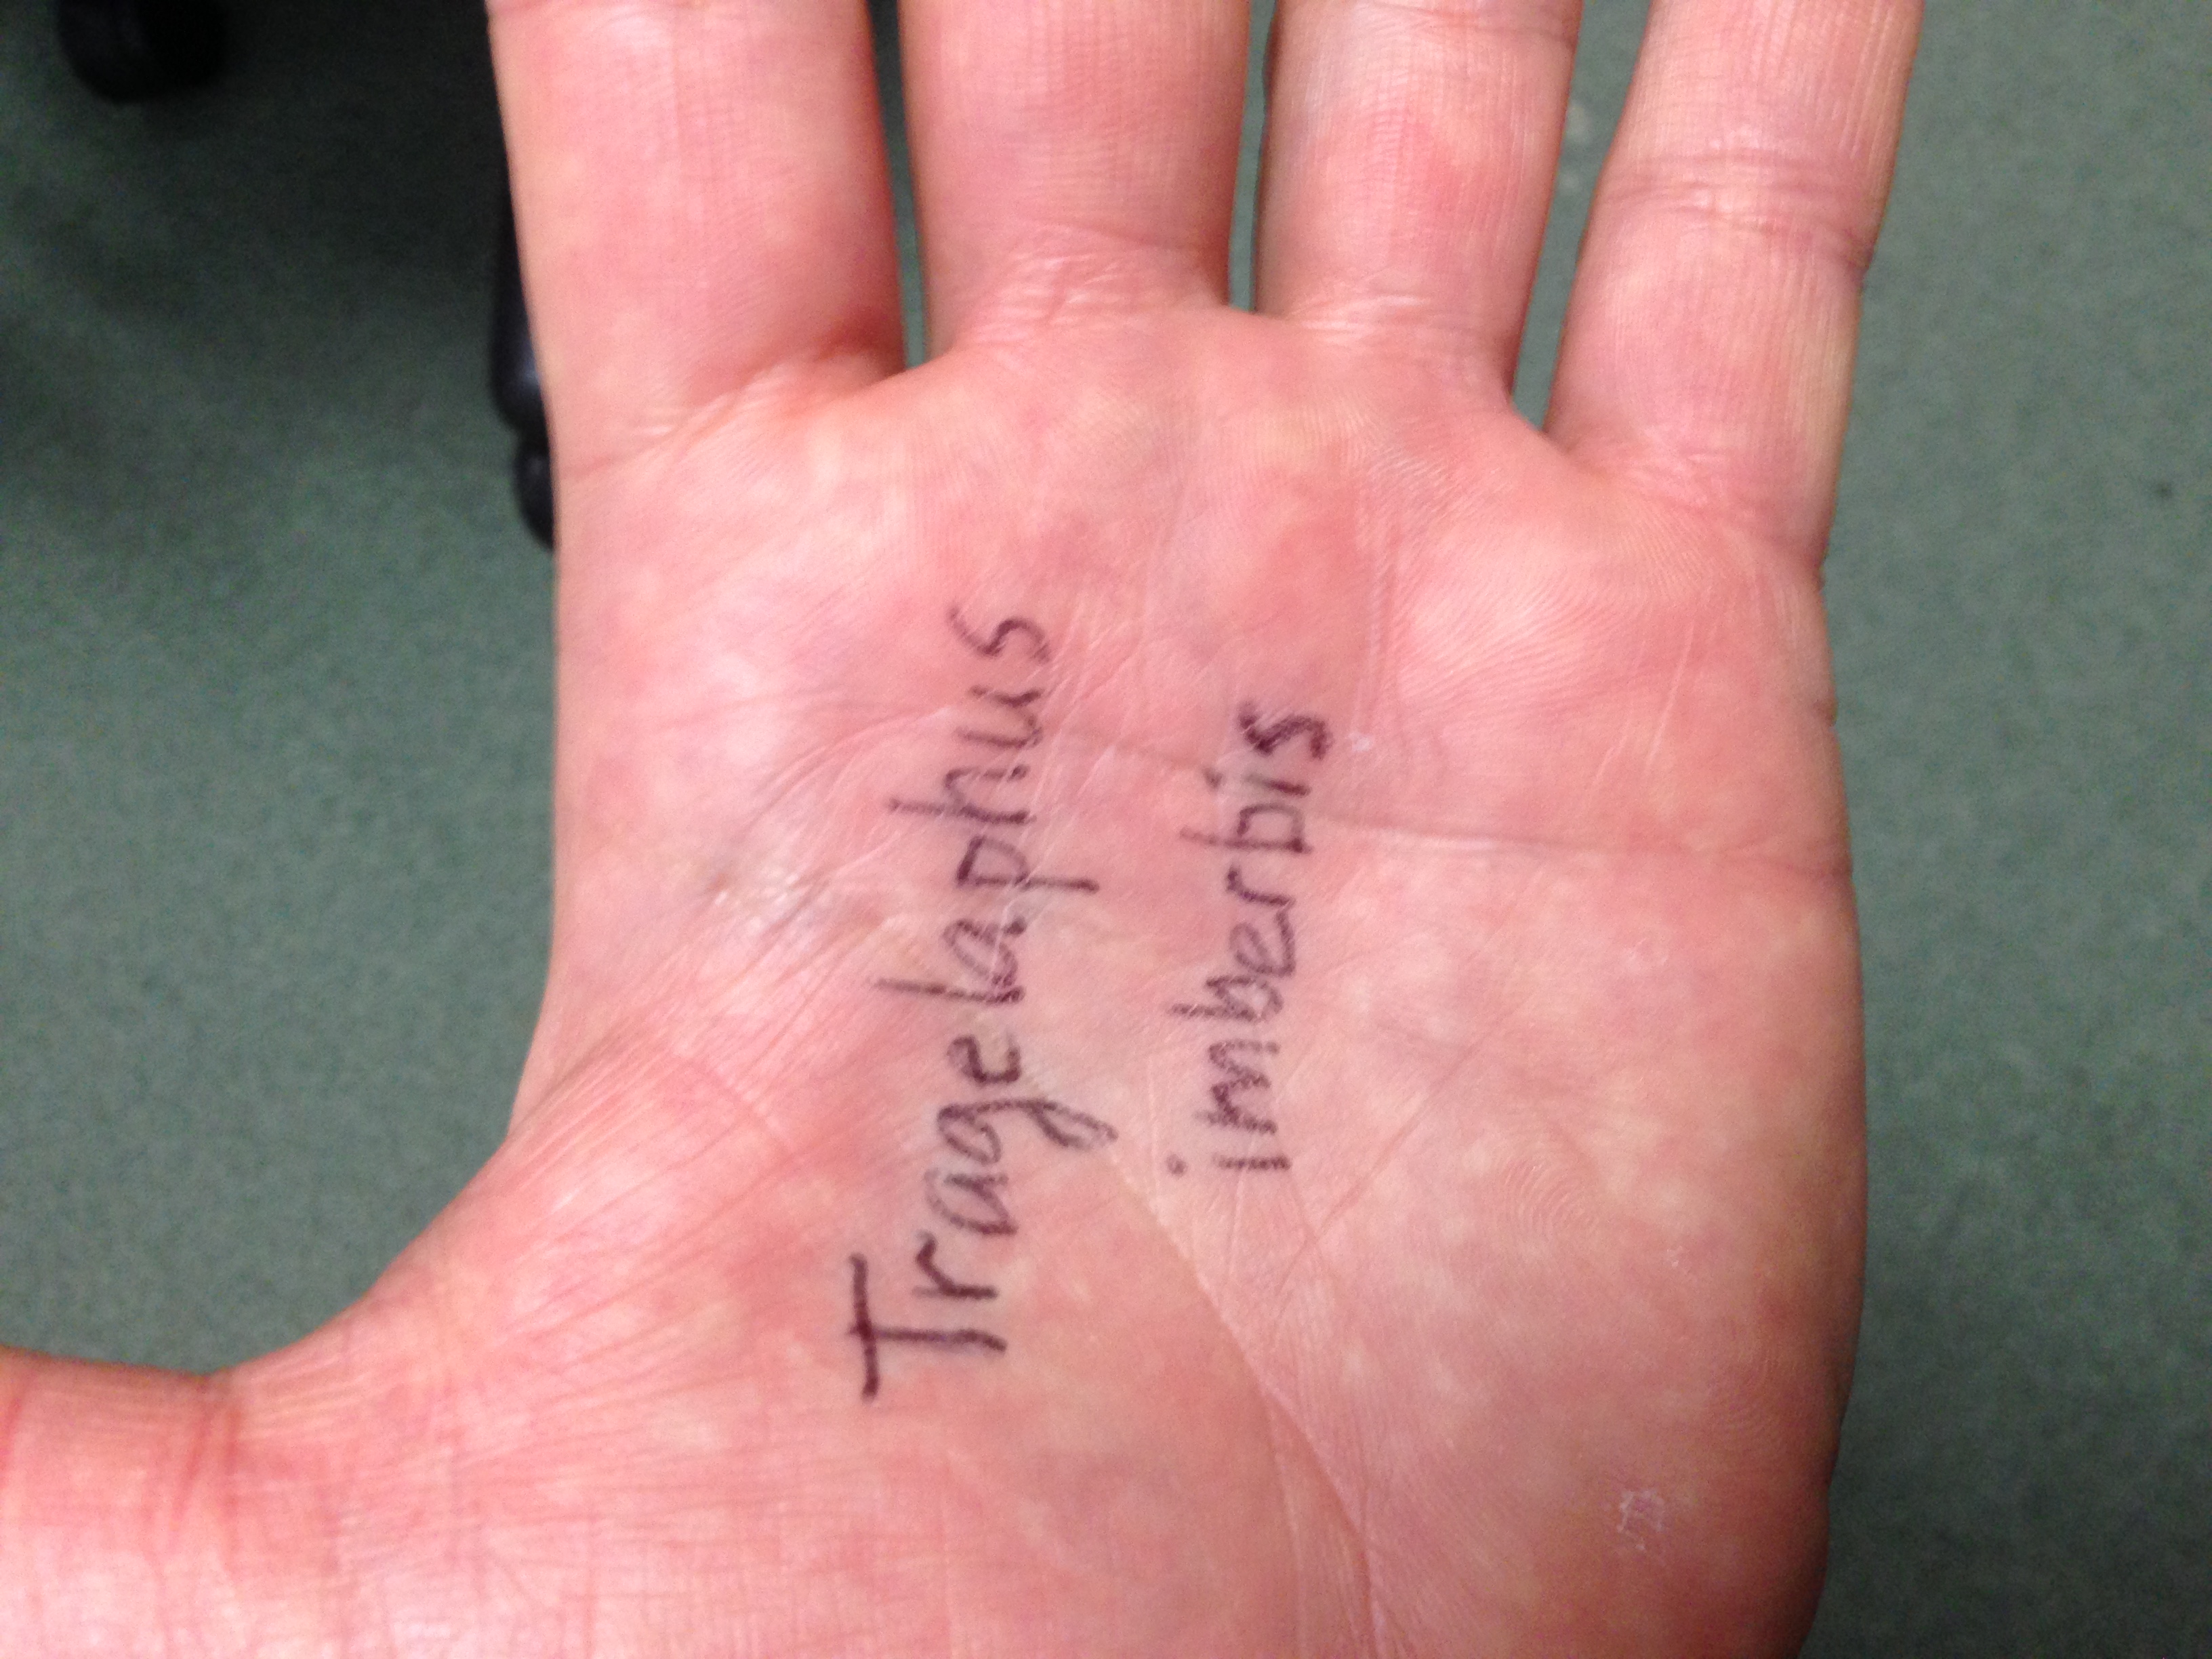 Tragelaphus
imberbis